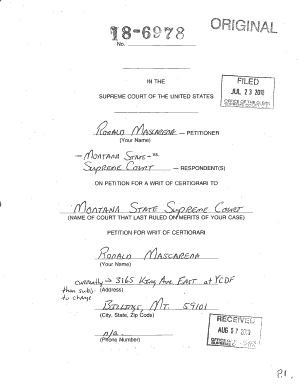 ORIGINAL
18-6978
No.
FILED
JUL 23 2018
OFFICE OF THE CLERK
IN THE
SUPREME COURT OF THE UNITED STATES
Ronald Mascarena — PETITIONER
(Your Name)
— Montana State — vs.
Supreme Court — RESPONDENT(S)
ON PETITION FOR A WRIT OF CERTIORARI TO
Montana State Supreme Court
(NAME OF COURT THAT LAST RULED ON MERITS OF YOUR CASE)
PETITION FOR WRIT OF CERTIORARI
Ronald Mascarena
(Your Name)
currently → 3165 King Ave East at YCDF
than subj. (Address)
to change
Billings, Mt. 59101
(City, State, Zip Code)
n/a
(Phone Number)
RECEIVED
AUG
OFFICE OF THE CLERK
P.1.